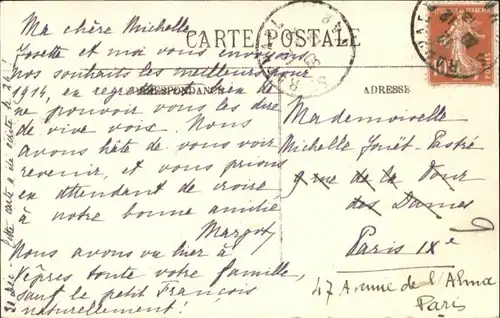 Ma chère Michelle
Josette et moi vous envoyons
nos souhaits les meilleurs pour
1914, en regrettant bien de
ne pouvoir vous les dire
de vive voix. Nous
avons hâte de vous voir
revenir, et vous prions
en attendant de croire
à notre bonne amitié
Margot
Nous avons vu hier à
Vêpres toute votre famille,
sauf le petit François
naturellement!
cette carte a été écrite le 26!
CARTE POSTALE
CORRESPONDANCE
ADRESSE
Mademoiselle
Michelle Jouët-Pastré
9 rue de la Tour
des Dames
Paris IXe
47 Avenue de l'Alma
Paris